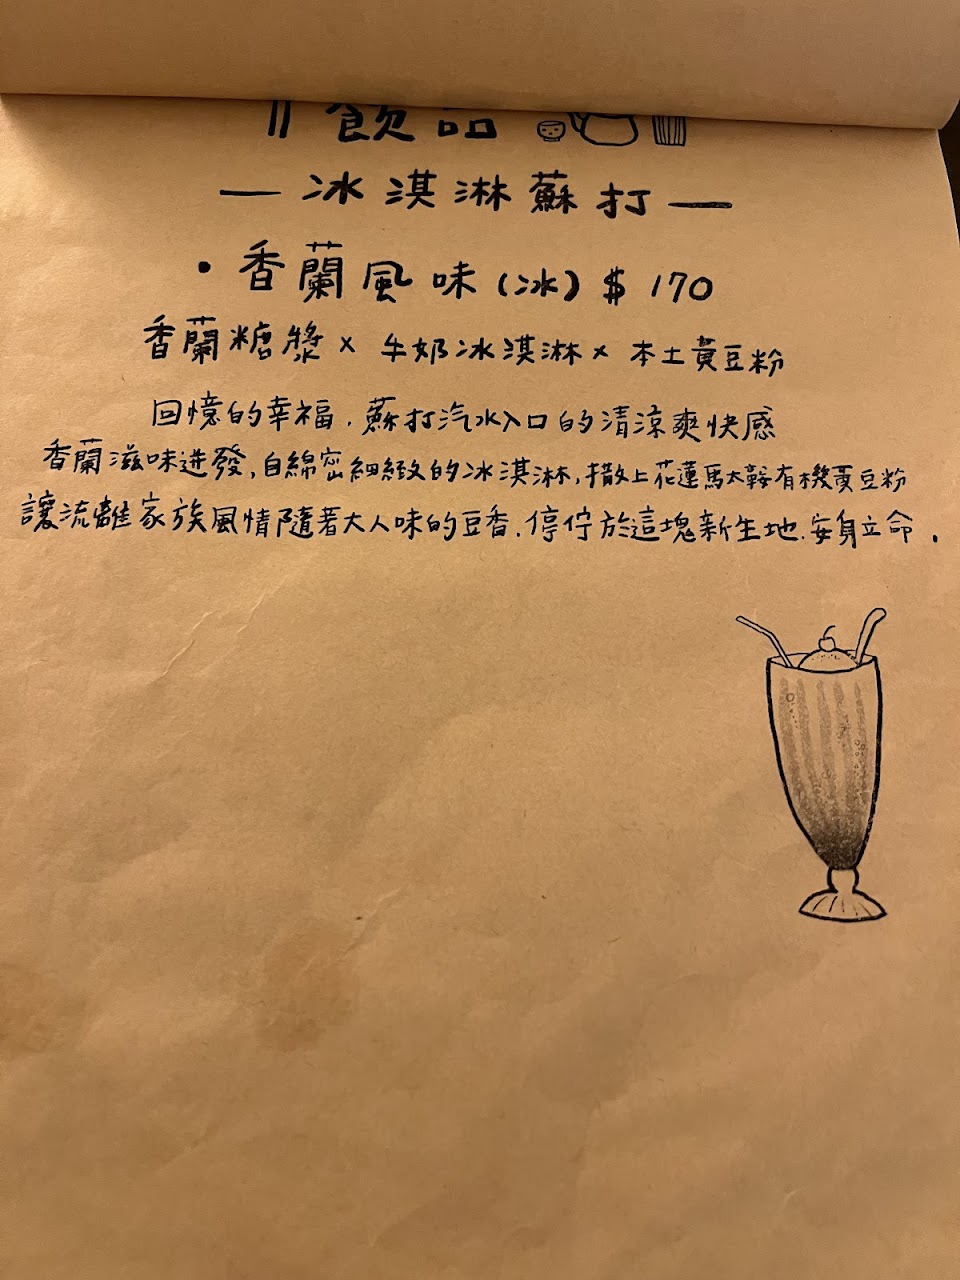 飲品
— 冰淇淋蘇打 —
• 香蘭風味(冰) $ 170
香蘭糖漿 x 牛奶冰淇淋 x 本土黃豆粉
回憶的幸福, 蘇打汽水入口的清涼爽快感
香蘭滋味迸發, 自綿密細緻的冰淇淋, 撒上花蓮馬太鞍有機黃豆粉
讓流離家族風情隨著大人味的豆香, 停佇於這塊新生地, 安身立命.